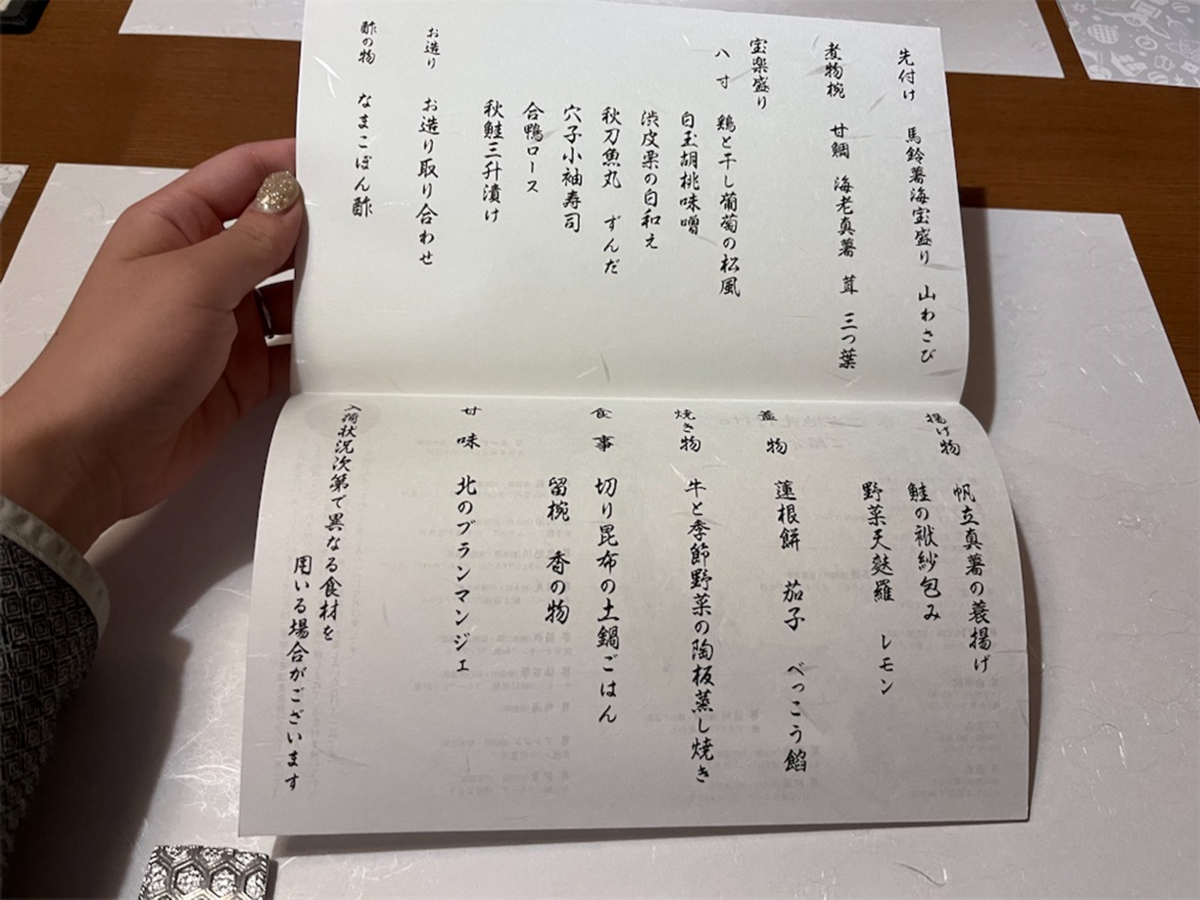 先付け 馬鈴薯海宝盛り 山わさび
煮物椀 甘鯛 海老真薯 茸 三つ葉
宝楽盛り
八寸 鶏と干し葡萄の松風
白玉胡桃味噌
渋皮栗の白和え
秋刀魚丸 ずんだ
穴子小袖寿司
合鴨ロース
秋鮭三升漬け
お造り お造り取り合わせ
酢の物 なまこぽん酢
揚げ物 帆立真薯の蓑揚げ
鮭の袱紗包み
野菜天麩羅 レモン
蓋物 蓮根餅 茄子 べっこう餡
焼き物 牛と季節野菜の陶板蒸し焼き
食事 切り昆布の土鍋ごはん
留椀 香の物
甘味 北のブランマンジェ
入荷状況次第で異なる食材を
用いる場合がございます